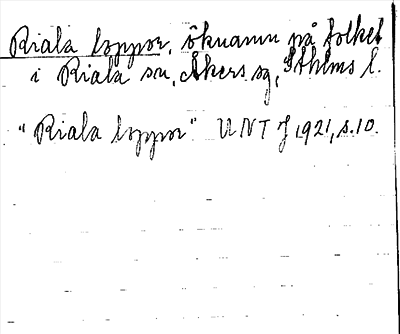 Riala loppor, öknamn på folket
i Riala sn, Åkers sg, Sthlms l.
"Riala loppor" UNT J 1921, s. 10.